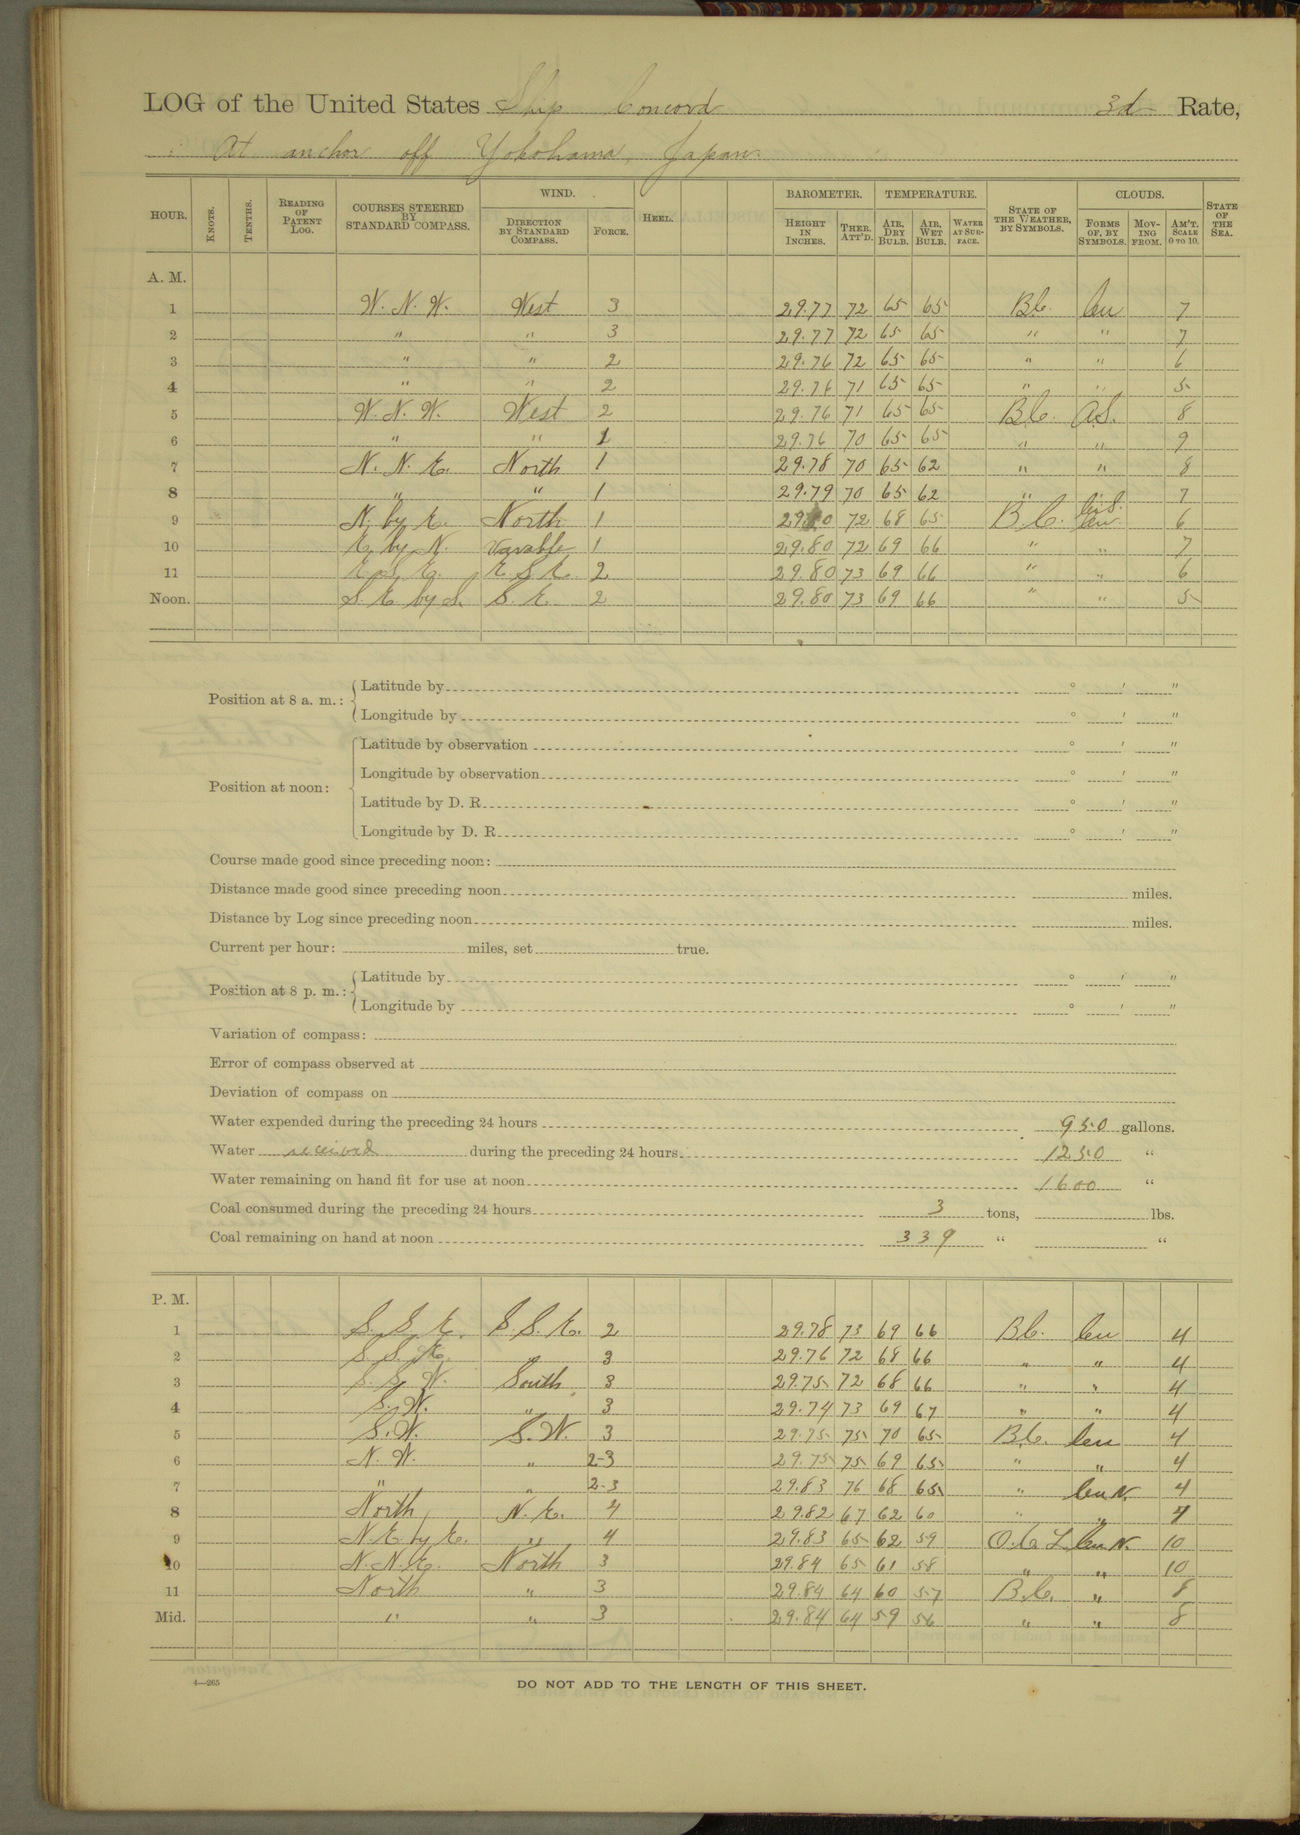 LOG of the United States Ship Concord 3d Rate,
At anchor off Yokohama, Japan.
HOUR. KNOTS. TENTHS. READING OF PATENT LOG. COURSES STEERED BY STANDARD COMPASS. WIND. DIRECTION BY STANDARD COMPASS. FORCE. HEEL. BAROMETER. HEIGHT IN INCHES. THER. ATT'D. TEMPERATURE. AIR, DRY BULB. AIR, WET BULB. WATER AT SURFACE. STATE OF THE WEATHER, BY SYMBOLS. CLOUDS. FORMS OF, BY SYMBOLS. MOVING FROM. AM'T. SCALE 0 TO 10. STATE OF THE SEA.
A. M.
1 W. N. W. West 3 29.77 72 65 65 B.C. Cu 7
2 " " 3 29.77 72 65 65 " " 7
3 " " 2 29.76 72 65 65 " " 6
4 " " 2 29.76 71 65 65 " " 5
5 W. N. W. West 2 29.76 71 65 65 B.C. A.S. 8
6 " " 1 29.76 70 65 65 " " 9
7 N. N. E. North 1 29.78 70 65 62 " " 8
8 " " 1 29.79 70 65 62 " " 7
9 N. by E. North 1 72 68 65 B.C. Cu. 6
10 E. by N. Varable 1 29.80 72 69 66 " " 7
11 E. S. E. E. S. E. 2 29.80 73 69 66 " " 6
Noon. S. E. by S. S. E. 2 29.80 73 69 66 " " 5
Position at 8 a. m.: Latitude by ° ' "
Longitude by ° ' "
Position at noon: Latitude by observation ° ' "
Longitude by observation ° ' "
Latitude by D. R. ° ' "
Longitude by D. R. ° ' "
Course made good since preceding noon:
Distance made good since preceding noon miles.
Distance by Log since preceding noon miles.
Current per hour: miles, set true.
Position at 8 p. m.: Latitude by ° ' "
Longitude by ° ' "
Variation of compass:
Error of compass observed at
Deviation of compass on
Water expended during the preceding 24 hours 950 gallons.
Water received during the preceding 24 hours 1250 "
Water remaining on hand fit for use at noon 1600 "
Coal consumed during the preceding 24 hours 3 tons, lbs.
Coal remaining on hand at noon 339 " "
P. M.
1 S. S. E. S. S. E. 2 29.78 73 69 66 B.C. Cu 4
2 S. S. E. " 3 29.76 72 68 66 " " 4
3 S. S. W. South 3 29.75 72 68 66 " " 4
4 S. W. " 3 29.74 73 69 67 " " 4
5 S. W. S. W. 3 29.75 75 70 65 B.C. Cu 4
6 N. W. " 2-3 29.75 75 69 65 " " 4
7 " " 2-3 29.83 76 68 65 " Cu N. 4
8 North N. E. 4 29.82 67 62 60 " "
9 N. E. by E. " 4 29.83 65 62 59 O.C. L. Cu. N. 10
10 N. N. E. North 3 29.84 65 61 58 " " 10
11 North " 3 29.84 64 60 57 B.C. " 8
Mid. " " 3 29.84 64 59 56 " " 8
4—265 DO NOT ADD TO THE LENGTH OF THIS SHEET.